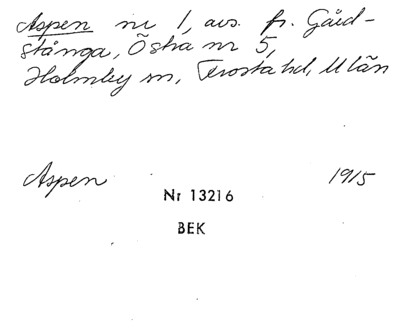 Aspen nr 1, avs. fr. Gård-
stånga, Östra nr 5,
Holmby sn, Frosta hd, M län
Aspen 1915
Nr 13216
BEK